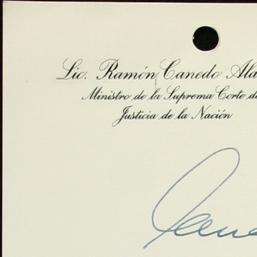 Lic. Ramón Canedo Alda
Ministro de la Suprema Corte de
Justicia de la Nación